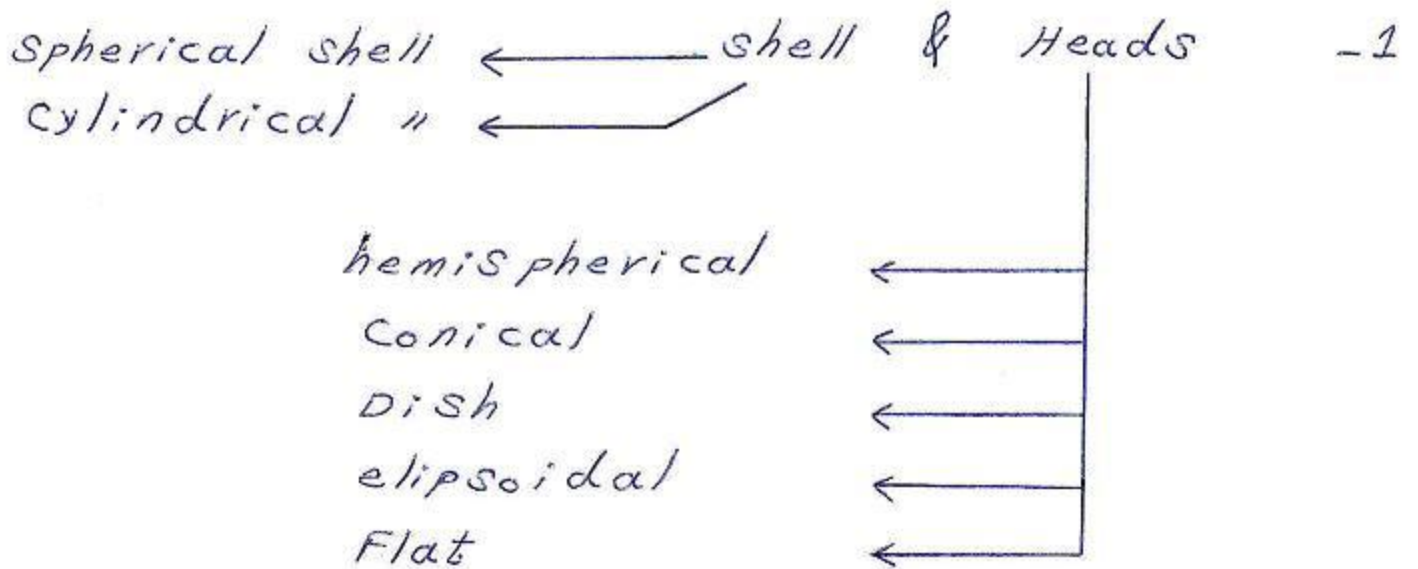 Spherical shell ← shell & Heads -1
Cylindrical " ←
hemispherical ←
Conical ←
Dish ←
elipsoidal ←
Flat ←